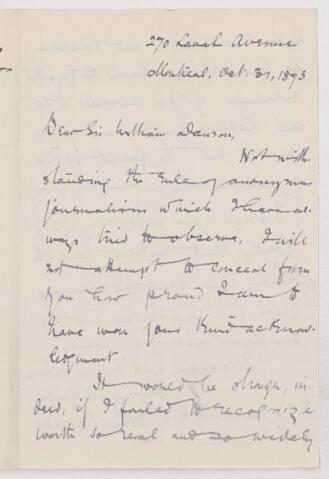 270 Laval Avenue
Montreal, Oct. 31, 1893
Dear Sir William Dawson,
Notwith-
standing the rule of anonymous
journalism which I have al-
ways tried to observe, I will
not attempt to conceal from
you how proud I am to
have won your kind acknow-
ledgment.
It would be strange, in-
deed, if I failed to recognize
worth so real and so widely